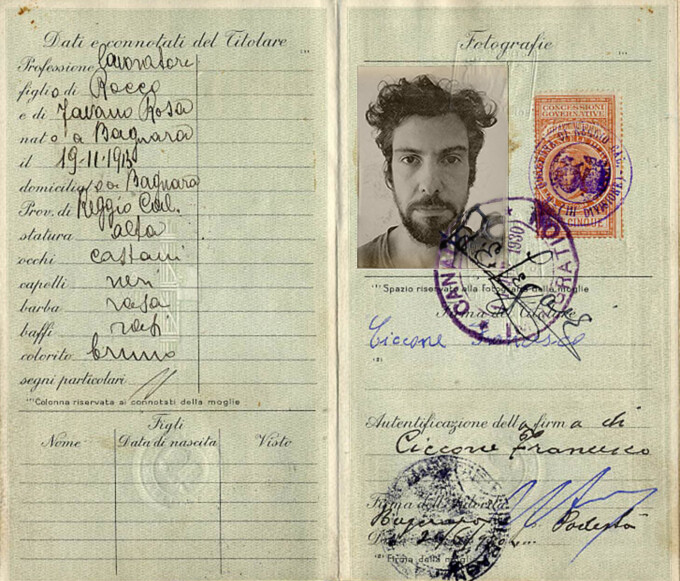 Dati e connotati del Titolare
Professione lavoratore
figlio di Rocco
e di Zavano Rosa
nato a Bagnara
il 19-11-1913
domiciliato a Bagnara
Prov. di Reggio Cal.
statura alta
occhi castani
capelli neri
barba rasa
baffi rasi
colorito bruno
segni particolari
(*) Colonna riservata ai connotati della moglie
Figli
Nome Data di nascita Visto
Fotografie
CONCESSIONI
GOVERNATIVE
CINQUE
(*) Spazio riservato alla fotografia della moglie
Firma del Titolare
Ciccone Francesco
(2)
Autentificazione della firma di
Ciccone Francesco
Firma dell'Autorità
Podestà
(2) Firma della moglie
CANADA
IMMIGRATION
1930